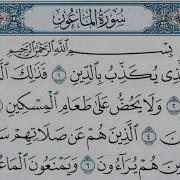 سُورَةُ الْمَاعُونِ
بِسْمِ ٱللَّهِ ٱلرَّحْمَٰنِ ٱلرَّحِيمِ
ذِى يُكَذِّبُ بِٱلدِّينِ ١ فَذَٰلِكَ ٱلَّ
٢ وَلَا يَحُضُّ عَلَىٰ طَعَامِ ٱلْمِسْكِينِ
ٱلَّذِينَ هُمْ عَن صَلَاتِهِمْ سَ
ينَ هُمْ يُرَآءُونَ ٦ وَيَمْنَعُونَ ٱلْمَاعُ